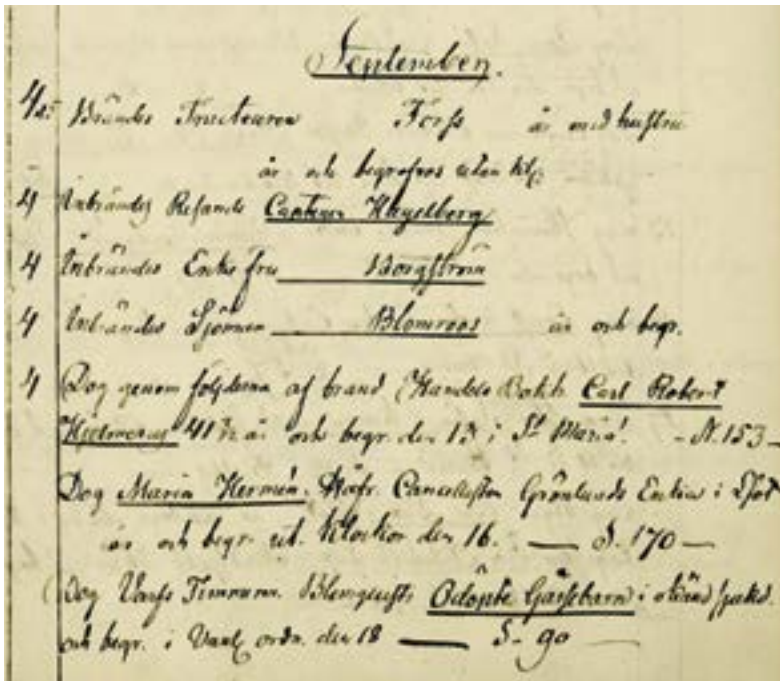 September.
4de Brändes Tracteuren Forss år med hustru
år och begrofvos utan kl.
4 Inbrändes Resande Capten Hagelberg
4 Inbrändes Enke fru Borgström
4 Inbrändes Sjöman Blomroos år och begr.
4 Dog genom följderna af brand Handels Bokh. Carl Robert
41 ½ år och begr. den 13 i St Maria. - N. 153 -
Dog Maria Hermén, Cancellisten Grönlunds Enka i
år och begr. ut. klockor den 16. — S. 170 —
Dog Varfs Timmerm. Blomquists Odöpte Gåssebarn i
och begr. i vanl. ordn. den 18 — S. 90 —